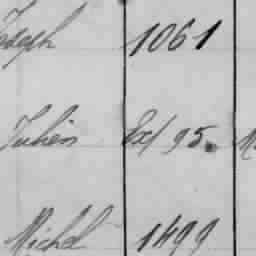 Joseph 1061
Julien Ex/95. M
Michel 1499